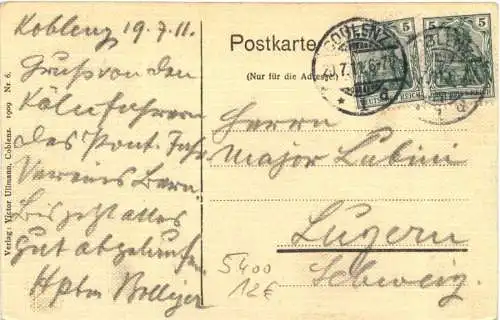 Koblenz 19.7.11.
Gruss von den
Kölnfahrern
des Pont. Fahr
Vereins Bern
Bis jetzt alles
gut abgelaufen
Hptm Bolliger
Verlag: Victor Ullmann, Coblenz. 1909 Nr. 6.
Postkarte
(Nur für die Adresse)
COBLENZ
5
5
DEUTSCHES REICH
Herrn
Major
Luzern
Schweiz
5400
12€